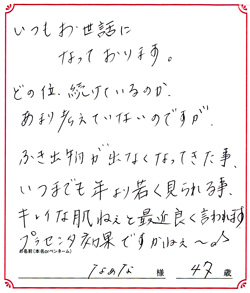 いつもお世話に
なっております。
どの位、続けているのか、
あまり考えていないのですが、
ふき出物が出なくなってきた事、
いつまでも年より若く見られる事、
キレイな肌ねぇと最近良く言われます
プラセンタ効果ですかねぇ〜♪
お名前(本名orペンネーム)
なぁな 様 47歳